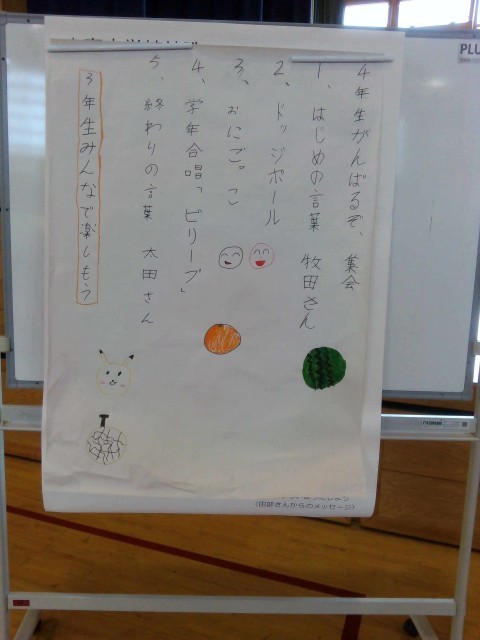 4年生がんばるぞ、集会
1、はじめの言葉 牧田さん
2、ドッジボール
3、おにごっこ
4、学年合唱「ビリーブ」
5、終わりの言葉 太田さん
3年生みんなで楽しもう
PLU